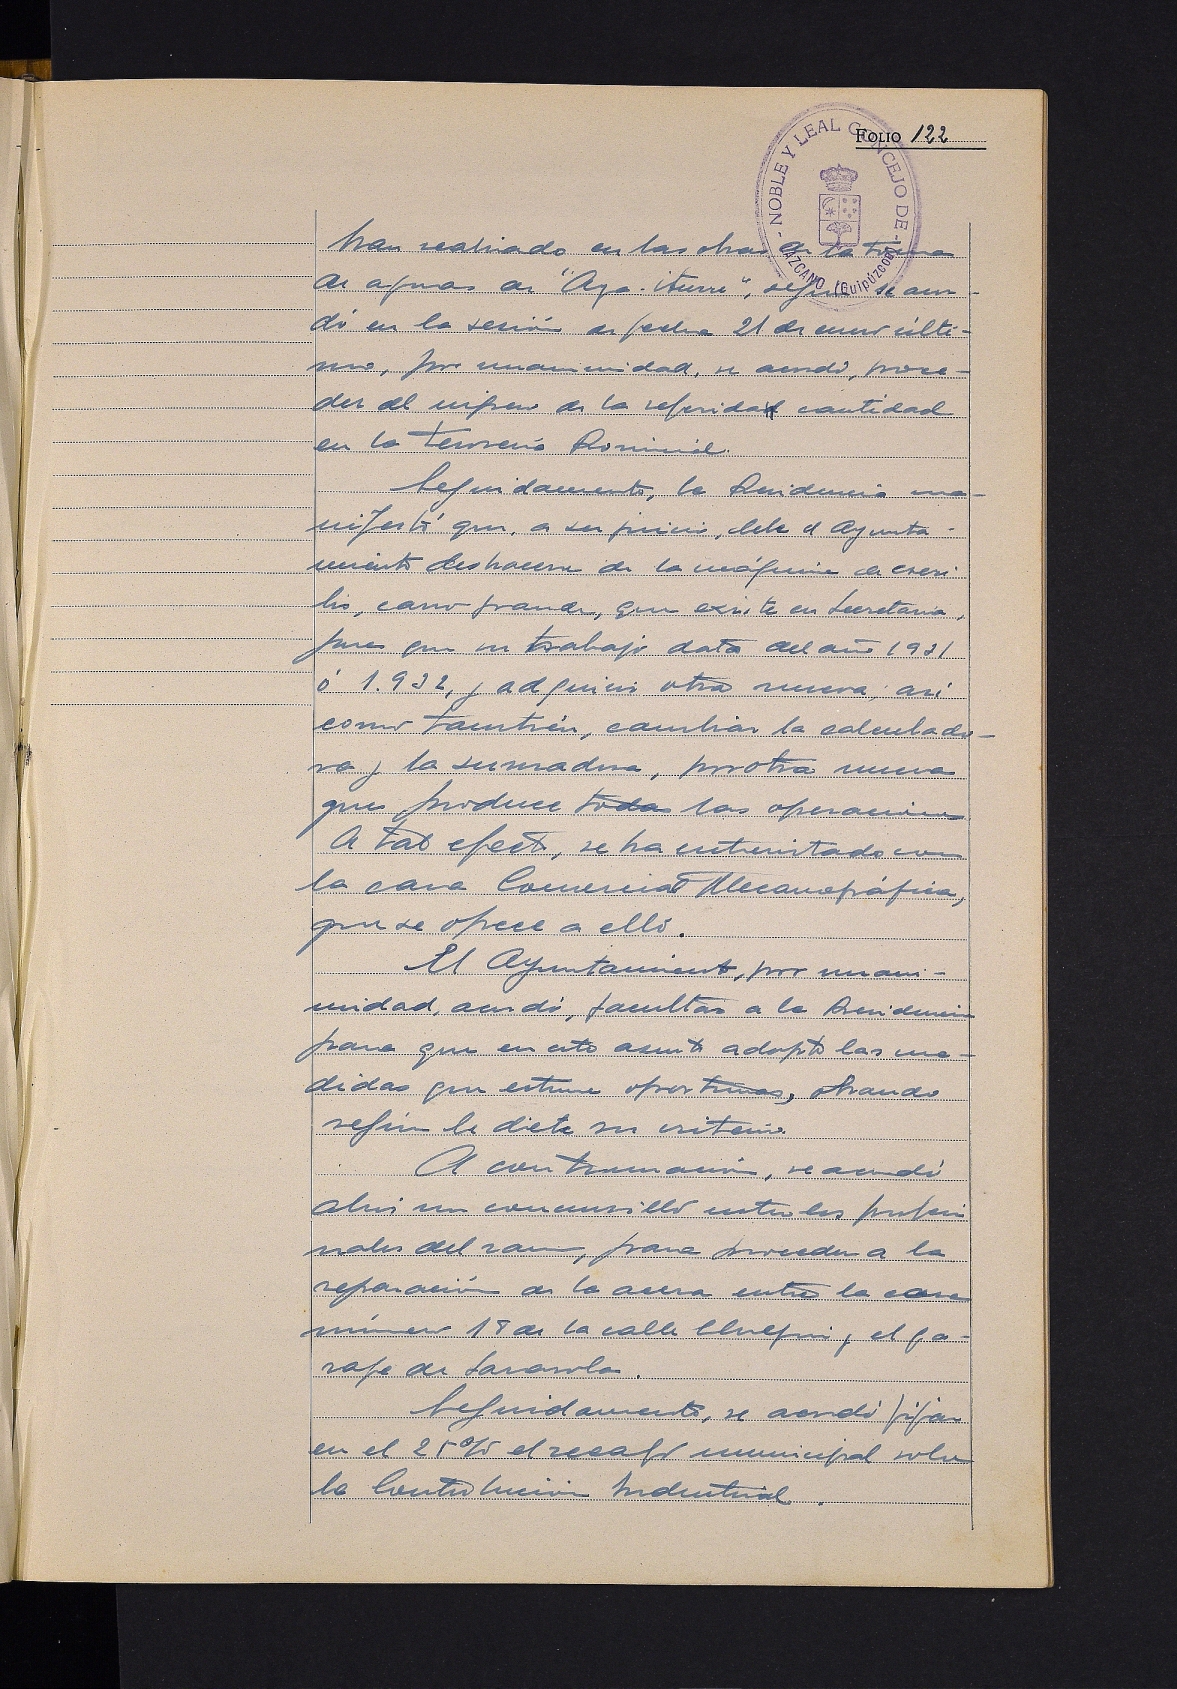 FOLIO 122
- NOBLE Y LEAL CONCEJO DE -
LAZCANO (Guipúzcoa)
han realizado en las obras de la toma
de aguas de "Aya-iturri", según se acor-
dó en la sesión de fecha 21 de enero últi-
mo, por unanimidad, se acordó, proce-
der al ingreso de la referida cantidad
en la Tesorería Provincial.
Seguidamente, la Presidencia ma-
nifestó que, a su juicio, debe el Ayunta-
miento deshacerse de la máquina de escri
bir, carro grande, que existe en Secretaría,
pues que su trabajo data del año 1931
ó 1.932, y adquirir otra nueva; así
como también, cambiar la calculado-
ra y la sumadora, por otra nueva
que produce todas las operaciones
A tal efecto, se ha entrevistado con
la casa Comercial Mecanográfica,
que se ofrece a ello.
El Ayuntamiento, por unani-
midad, acordó, facultar a la Presidencia
para que en este asunto adopte las me-
didas que estime oportunas, obrando
según le dicte su criterio.
A continuación, se acordó
abrir un concursillo entre los profesio
nales del ramo, para proceder a la
reparación de la acera entre la casa
número 18 de la calle Elhegui y el ga-
raje de Sarasola.
Seguidamente, se acordó fijar
en el 25% el recargo municipal sobre
la Contribución Industrial.